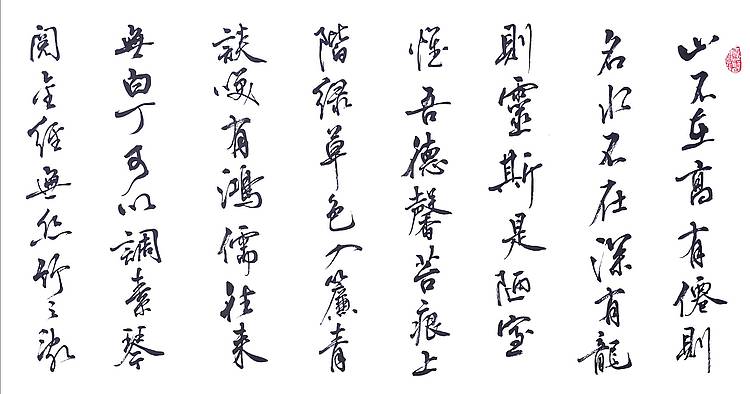 山不在高有僊則
名水不在深有龍
則靈斯是陋室
惟吾德馨苔痕上
階綠草色入簾青
談咲有鴻儒往來
無白丁可以調素琴
閱金經無絲竹之亂